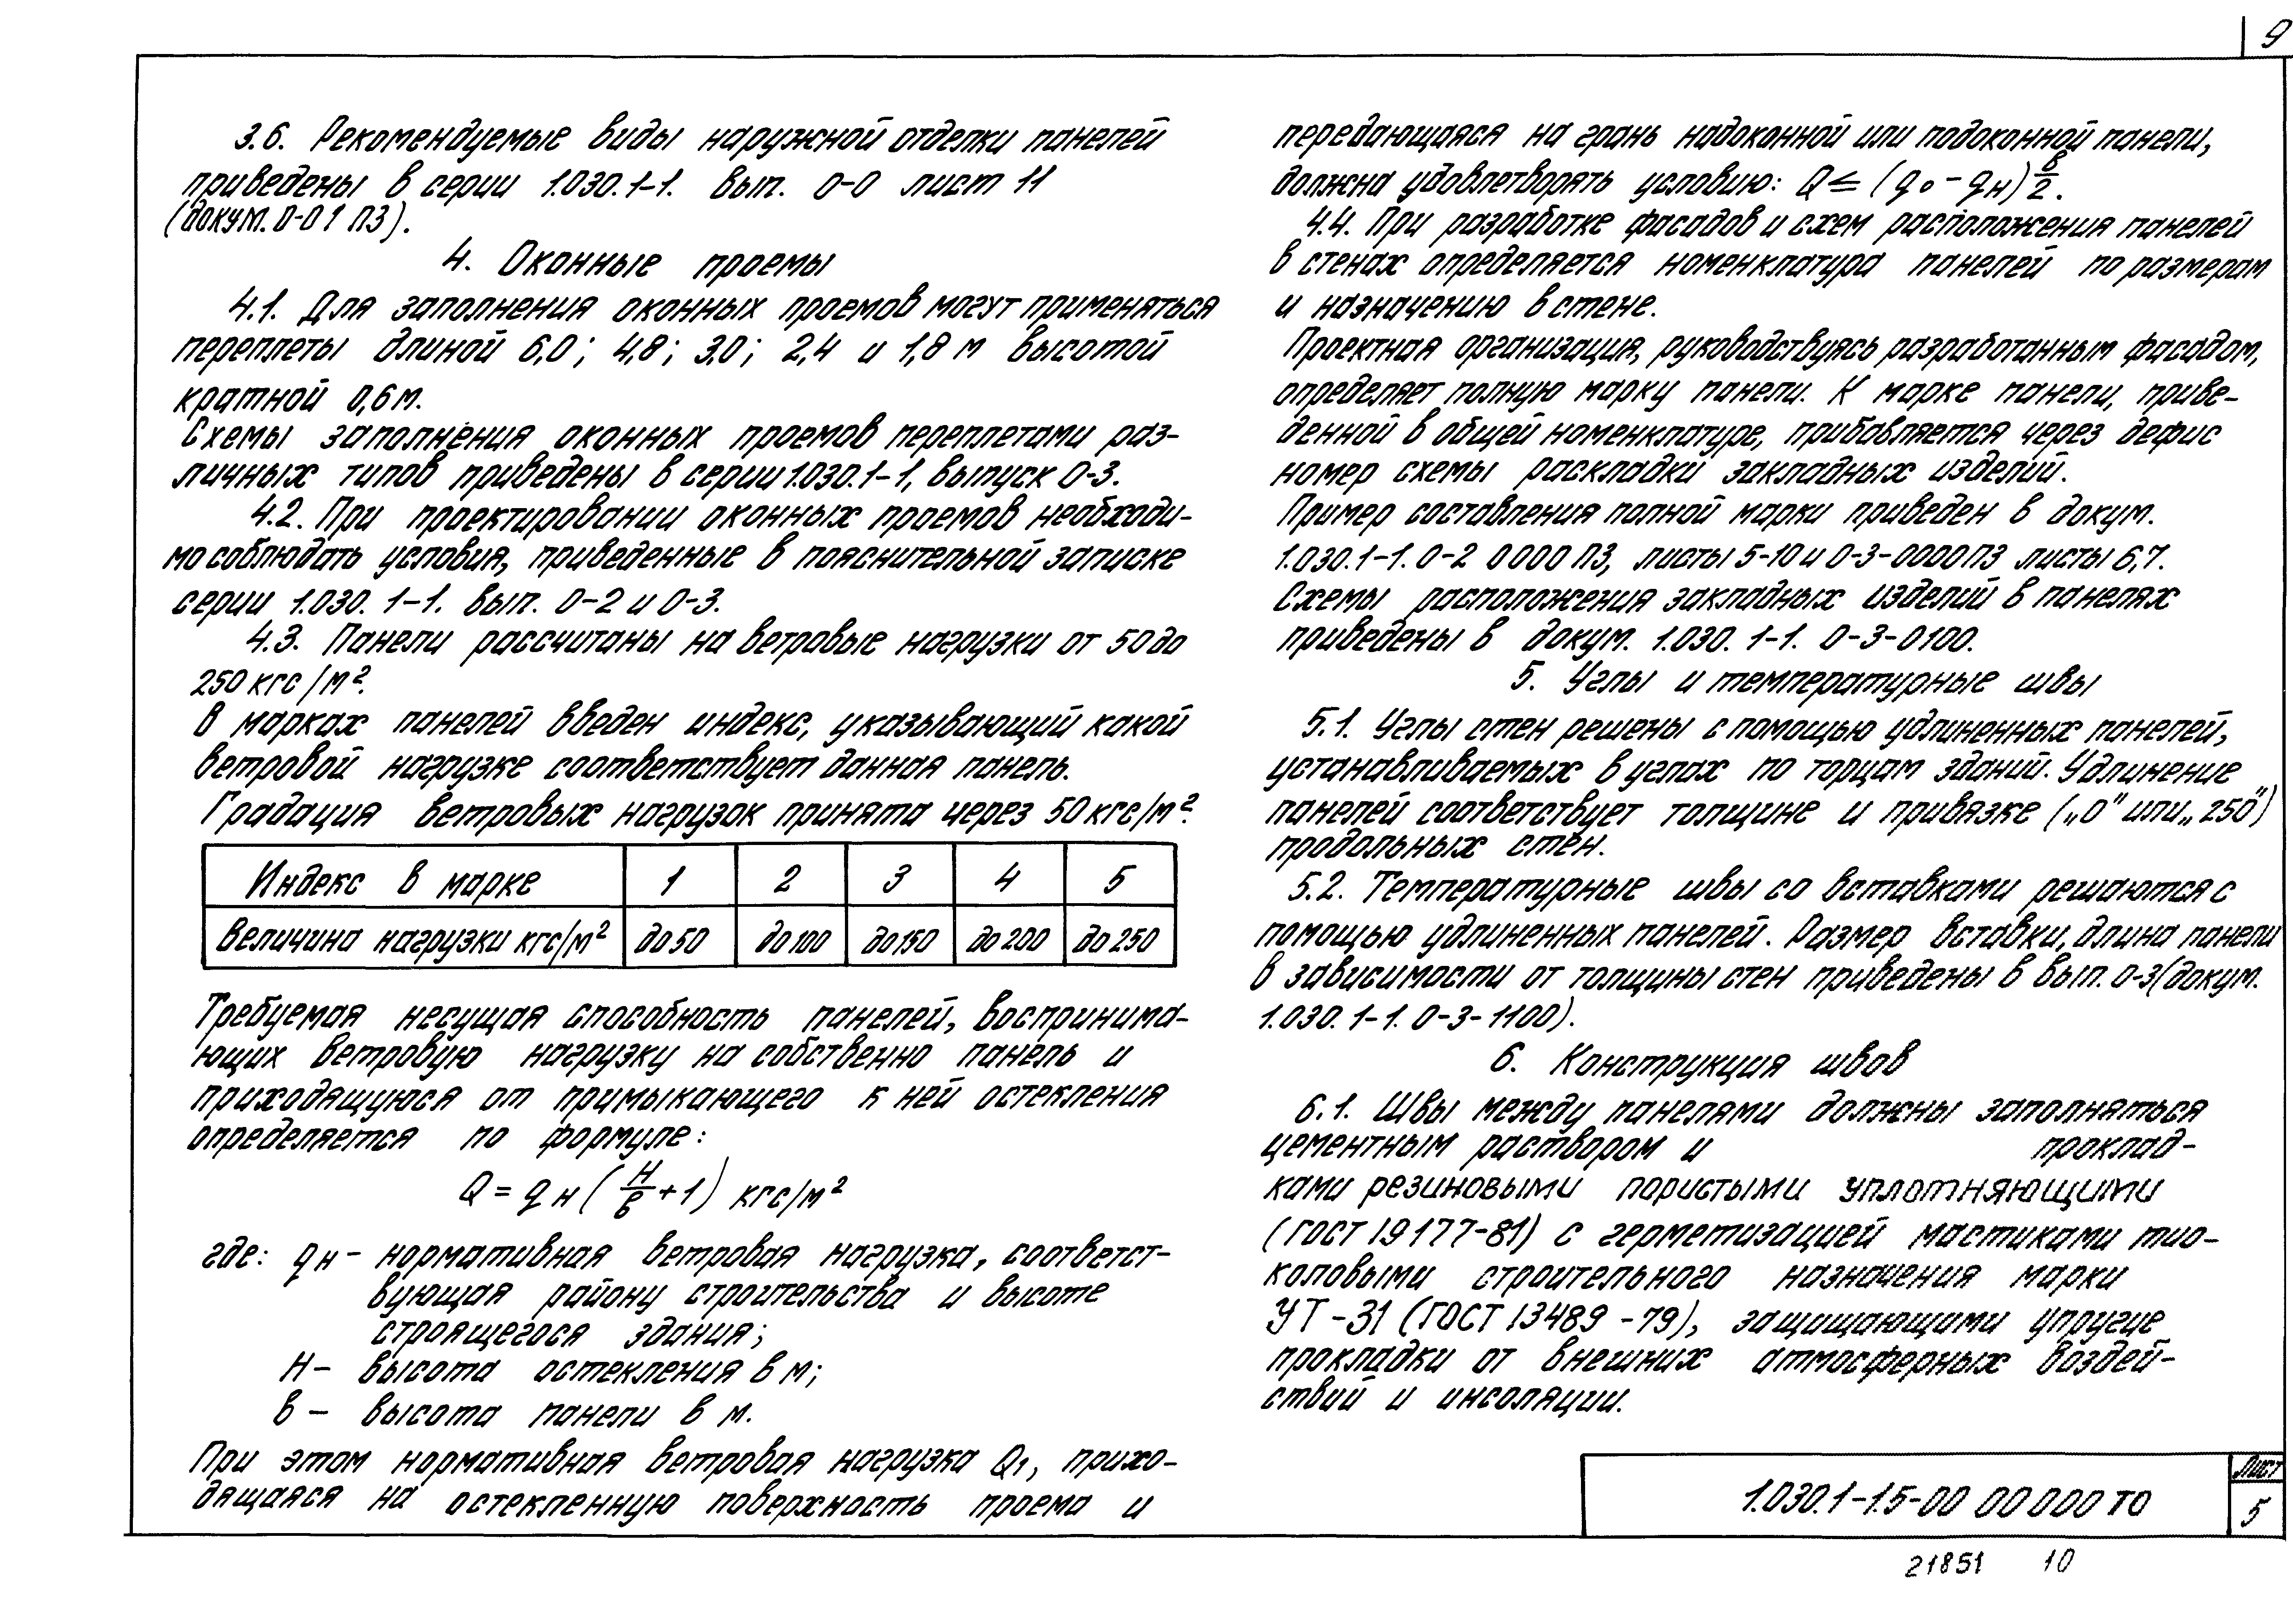 9
3.6. Рекомендуемые виды наружной отделки панелей
приведены в серии 1.030.1-1. вып. 0-0 лист 11
(докум. 0-0 1 ПЗ).
4. Оконные проемы
4.1. Для заполнения оконных проемов могут применяться
переплеты длиной 6,0; 4,8; 3,0; 2,4 и 1,8 м высотой
кратной 0,6 м.
Схемы заполнения оконных проемов переплетами раз-
личных типов приведены в серии 1.030.1-1, выпуск 0-3.
4.2. При проектировании оконных проемов необходи-
мо соблюдать условия, приведенные в пояснительной записке
серии 1.030. 1-1. вып. 0-2 и 0-3.
4.3. Панели рассчитаны на ветровые нагрузки от 50 до
250 кгс/м².
В марках панелей введен индекс, указывающий какой
ветровой нагрузке соответствует данная панель.
Градация ветровых нагрузок принята через 50 кгс/м².
Индекс в марке 1 2 3 4 5
Величина нагрузки кгс/м² до 50 до 100 до 150 до 200 до 250
Требуемая несущая способность панелей, воспринима-
ющих ветровую нагрузку на собственно панель и
приходящуюся от примыкающего к ней остекления
определяется по формуле:
Q = qн (H/в + 1) кгс/м²
где: qн - нормативная ветровая нагрузка, соответст-
вующая району строительства и высоте
строящегося здания;
H - высота остекления в м;
в - высота панели в м.
При этом нормативная ветровая нагрузка Q₁, прихо-
дящаяся на остекленную поверхность проема и
передающаяся на грань надоконной или подоконной панели,
должна удовлетворять условию: Q ≤ (q₀ - qн) в/2.
4.4. При разработке фасадов и схем расположения панелей
в стенах определяется номенклатура панелей по размерам
и назначению в стене.
Проектная организация, руководствуясь разработанным фасадом,
определяет полную марку панели. К марке панели, приве-
денной в общей номенклатуре, прибавляется через дефис
номер схемы раскладки закладных изделий.
Пример составления полной марки приведен в докум.
1.030.1-1. 0-2 0000 ПЗ, листы 5-10 и 0-3-0000ПЗ листы 6,7.
Схемы расположения закладных изделий в панелях
приведены в докум. 1.030. 1-1. 0-3-0100.
5. Углы и температурные швы
5.1. Углы стен решены с помощью удлиненных панелей,
устанавливаемых в углах по торцам зданий. Удлинение
панелей соответствует толщине и привязке („0" или „250")
продольных стен.
5.2. Температурные швы со вставками решаются с
помощью удлиненных панелей. Размер вставки, длина панели
в зависимости от толщины стен приведены в вып. 0-3 (докум.
1.030. 1-1. 0-3-1100).
6. Конструкция швов
6.1. Швы между панелями должны заполняться
цементным раствором и проклад-
ками резиновыми пористыми уплотняющими
(ГОСТ 19177-81) с герметизацией мастиками тио-
коловыми строительного назначения марки
УТ-31 (ГОСТ 13489-79), защищающими упругие
прокладки от внешних атмосферных воздей-
ствий и инсоляции.
1.030.1-1.5-00 00 000 ТО
Лист
5
21851 10